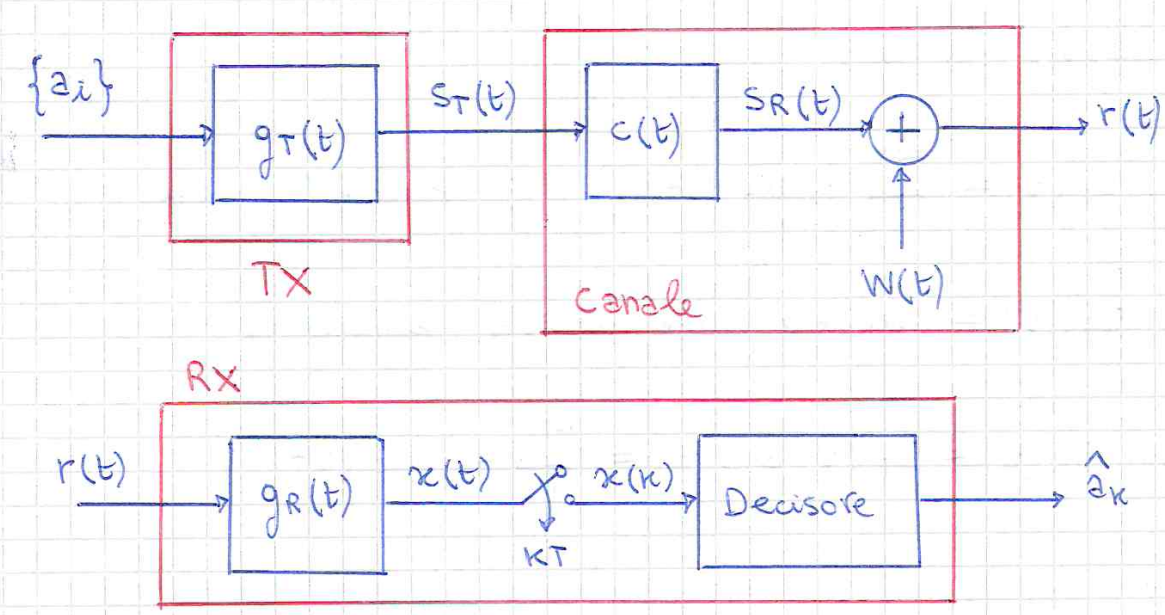 {a_i}
g_T(t)
S_T(t)
c(t)
S_R(t)
+
r(t)
W(t)
TX
Canale
RX
r(t)
g_R(t)
x(t)
KT
x(k)
Decisore
â_k